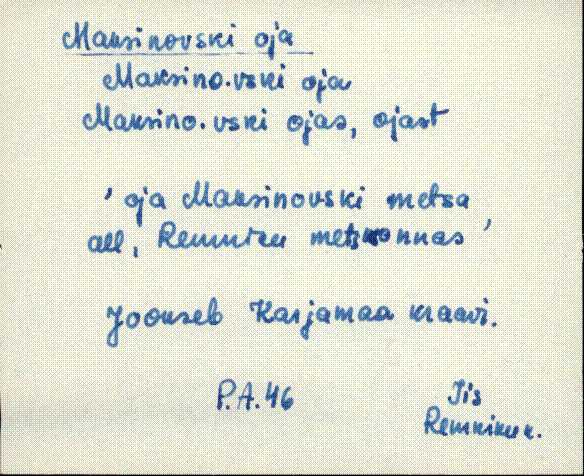 Maksinovski oja
Maksino.vski oja
Maksino.vski ojas, ojast
'oja Maksinovski metsa
all, Remniku metskonnas'
Jookseb Karjamaa kraavi.
P.A.46
Iis
Remniku k.